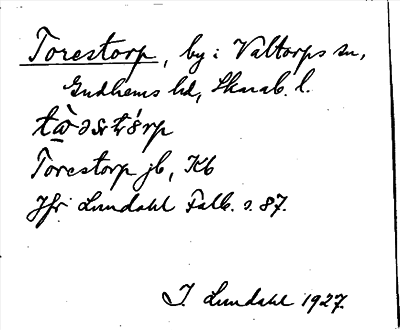 Torestorp, by i Valtorps sn,
Gudhems hd, Skarab. l.
Torestorp jb, Kb
Jfr Lundahl Falb. s. 87.
I. Lundahl 1927.